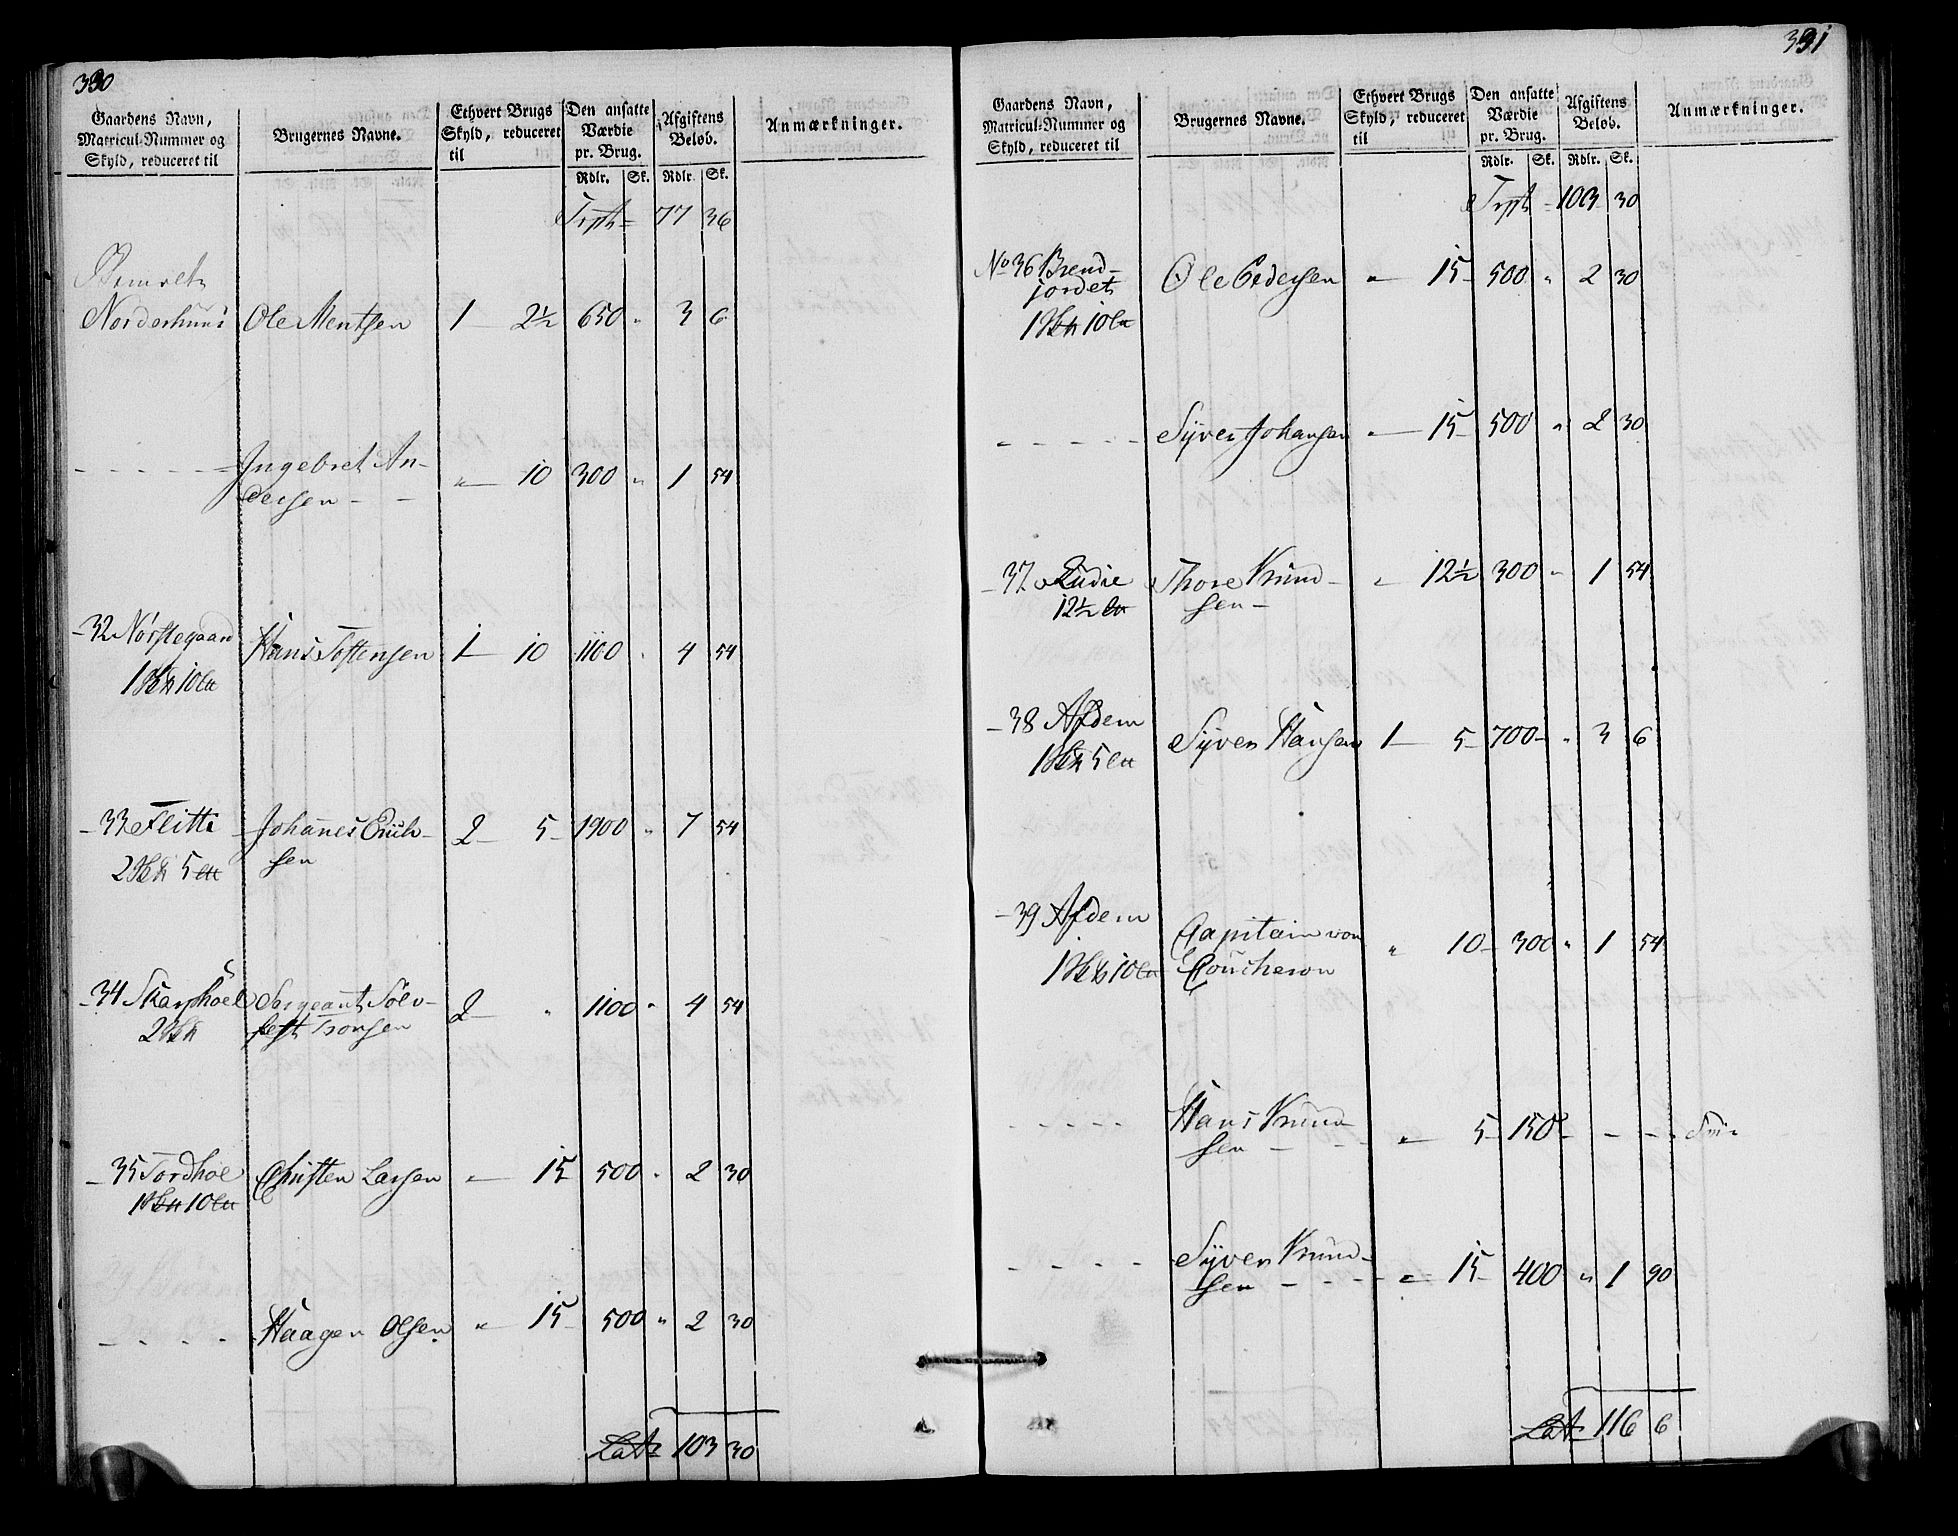 330
Gaardens Navn, Matricul-Nummer og Skyld, reduceret til | Brugernes Navne. | Ethvert Brugs Skyld, reduceret til | Den ansatte Værdie pr. Brug. Rdlr. Sk. | Afgiftens Beløb. Rdlr. Sk. | Anmærkninger.
77 36
Norderhuus Ole Mentsen 1 — 2½ 650 " 3 6
- - - - - Ingebret An-
dersen - - " — 10 300 " 1 54
- 32 Norstegaard Hans Toftensen 1 — 10 1100 " 4 54
- 33 Flitti Johanes Erich-
sen 2 — 5 - 1900 " 7 54
- 34 Skarphoel Sergeant Sølv-
2 — " 1100 " 4 54
- 35 Tordhoe Christen Larsen " — 15 500 " 2 30
- - - - Haagen Olsen " — 15 500 " 2 30
Lat 103 30
331
Gaardens Navn, Matricul-Nummer og Skyld, reduceret til | Brugernes Navne. | Ethvert Brugs Skyld, reduceret til | Den ansatte Værdie pr. Brug. Rdlr. Sk. | Afgiftens Beløb. Rdlr. Sk. | Anmærkninger.
103 30
No 36 Brend-
jordet Ole Pedersen " — 15 500 " 2 30
- - - - - Syver Johansen " — 15 500 " 2 30
- 37 Thore Knud-
12½ sen - " 12½ 300 " 1 54
- 38 Afdem Syver Hansen 1 — 5 - 700 - " 3 6
- 39 Afdem Capitain von
Coucheron " 10 - 300 " 1 54
- - - - - Hans Knud-
sen - - " 5 - 150 - - - - Frie
- - - - Syver Knud-
sen - - - - " 15 400 " 1 90
Lat 116 6